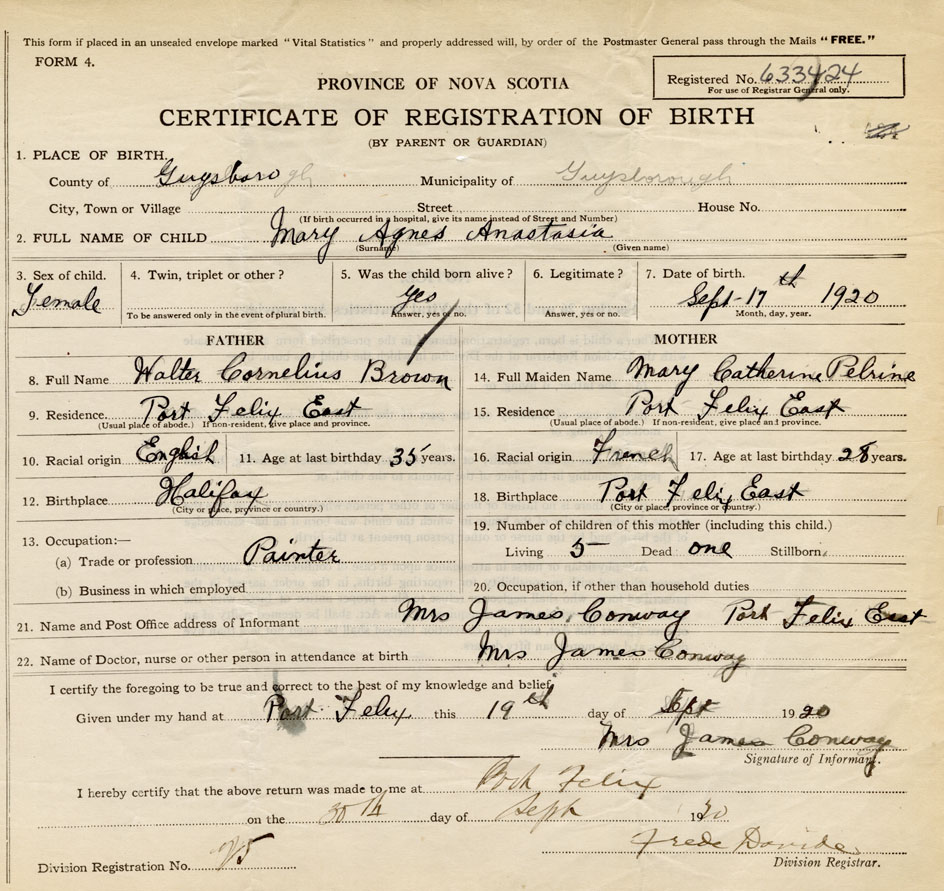 This form if placed in an unsealed envelope marked "Vital Statistics" and properly addressed will, by order of the Postmaster General pass through the Mails "FREE."
FORM 4.
Registered No. 633424
For use of Registrar General only.
PROVINCE OF NOVA SCOTIA
CERTIFICATE OF REGISTRATION OF BIRTH
(BY PARENT OR GUARDIAN)
1. PLACE OF BIRTH.
County of Guysborough Municipality of Guysborough
City, Town or Village Street House No.
(If birth occurred in a hospital, give its name instead of Street and Number)
2. FULL NAME OF CHILD Mary Agnes Anastasia
(Surname) (Given name)
3. Sex of child. 4. Twin, triplet or other? 5. Was the child born alive? 6. Legitimate? 7. Date of birth.
Female yes Sept-17th 1920
To be answered only in the event of plural birth. Answer, yes or no. Answer, yes or no. Month, day, year.
FATHER MOTHER
8. Full Name Walter Cornelius Brown 14. Full Maiden Name Mary Catherine Pelrine
9. Residence. Port Felix East 15. Residence Port Felix East
(Usual place of abode.) If non-resident, give place and province. (Usual place of abode.) If non-resident, give place and province.
10. Racial origin English 11. Age at last birthday 35 years. 16. Racial origin French 17. Age at last birthday 28 years.
12. Birthplace Halifax 18. Birthplace Port Felix East
(City or place, province or country.) (City or place, province or country.)
19. Number of children of this mother (including this child.)
13. Occupation:—
(a) Trade or profession Painter Living 5 Dead one Stillborn.
(b) Business in which employed 20. Occupation, if other than household duties
21. Name and Post Office address of Informant Mrs James Conway Port Felix East
22. Name of Doctor, nurse or other person in attendance at birth Mrs James Conway
I certify the foregoing to be true and correct to the best of my knowledge and belief.
Given under my hand at Port Felix this 19th day of Sept 1920
Mrs James Conway
Signature of Informant.
I hereby certify that the above return was made to me at Port Felix
on the 30th day of Sept 1920
Division Registration No. 25
Division Registrar.